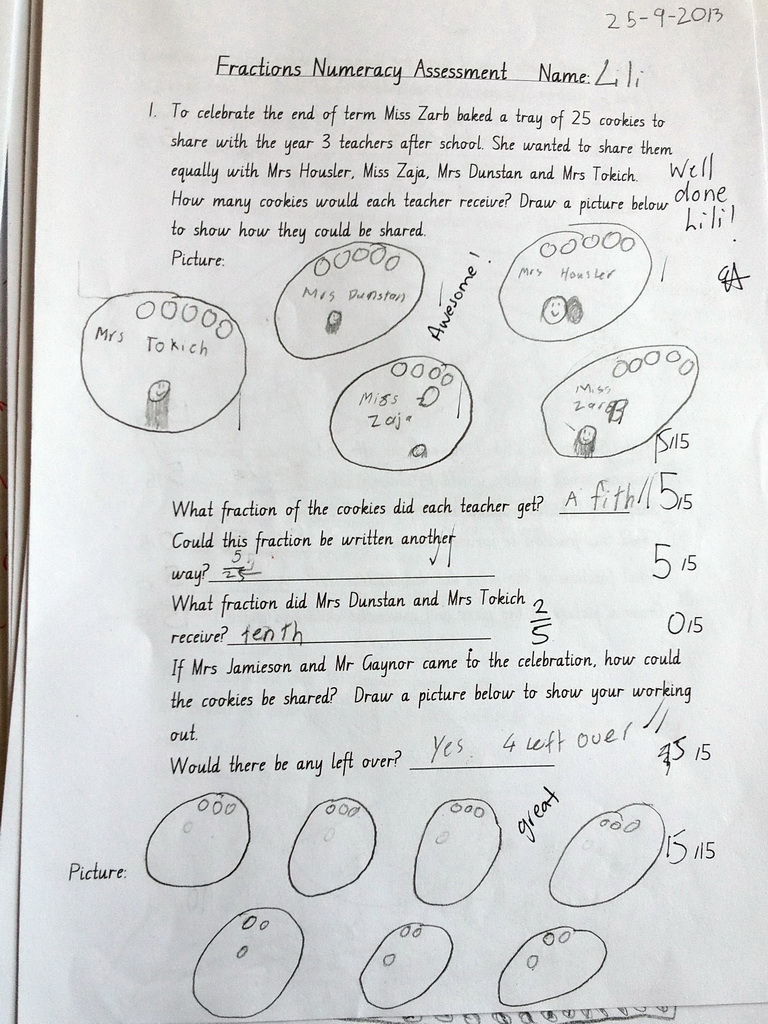 25-9-2013
Fractions Numeracy Assessment Name: Lili
1. To celebrate the end of term Miss Zarb baked a tray of 25 cookies to
share with the year 3 teachers after school. She wanted to share them
equally with Mrs Housler, Miss Zaja, Mrs Dunstan and Mrs Tokich.
How many cookies would each teacher receive? Draw a picture below
to show how they could be shared.
Well
done
Lili!
Picture:
Mrs Dunstan
Awesome!
Mrs Housler
Mrs Tokich
Miss
Zaja
Miss
5/15
What fraction of the cookies did each teacher get? A fith 5/5
Could this fraction be written another
way? 5/25
5/5
What fraction did Mrs Dunstan and Mrs Tokich
receive? tenth 2/5
0/5
If Mrs Jamieson and Mr Gaynor came to the celebration, how could
the cookies be shared? Draw a picture below to show your working
out.
Would there be any left over? Yes 4 left over
5/5
great
15/15
Picture: